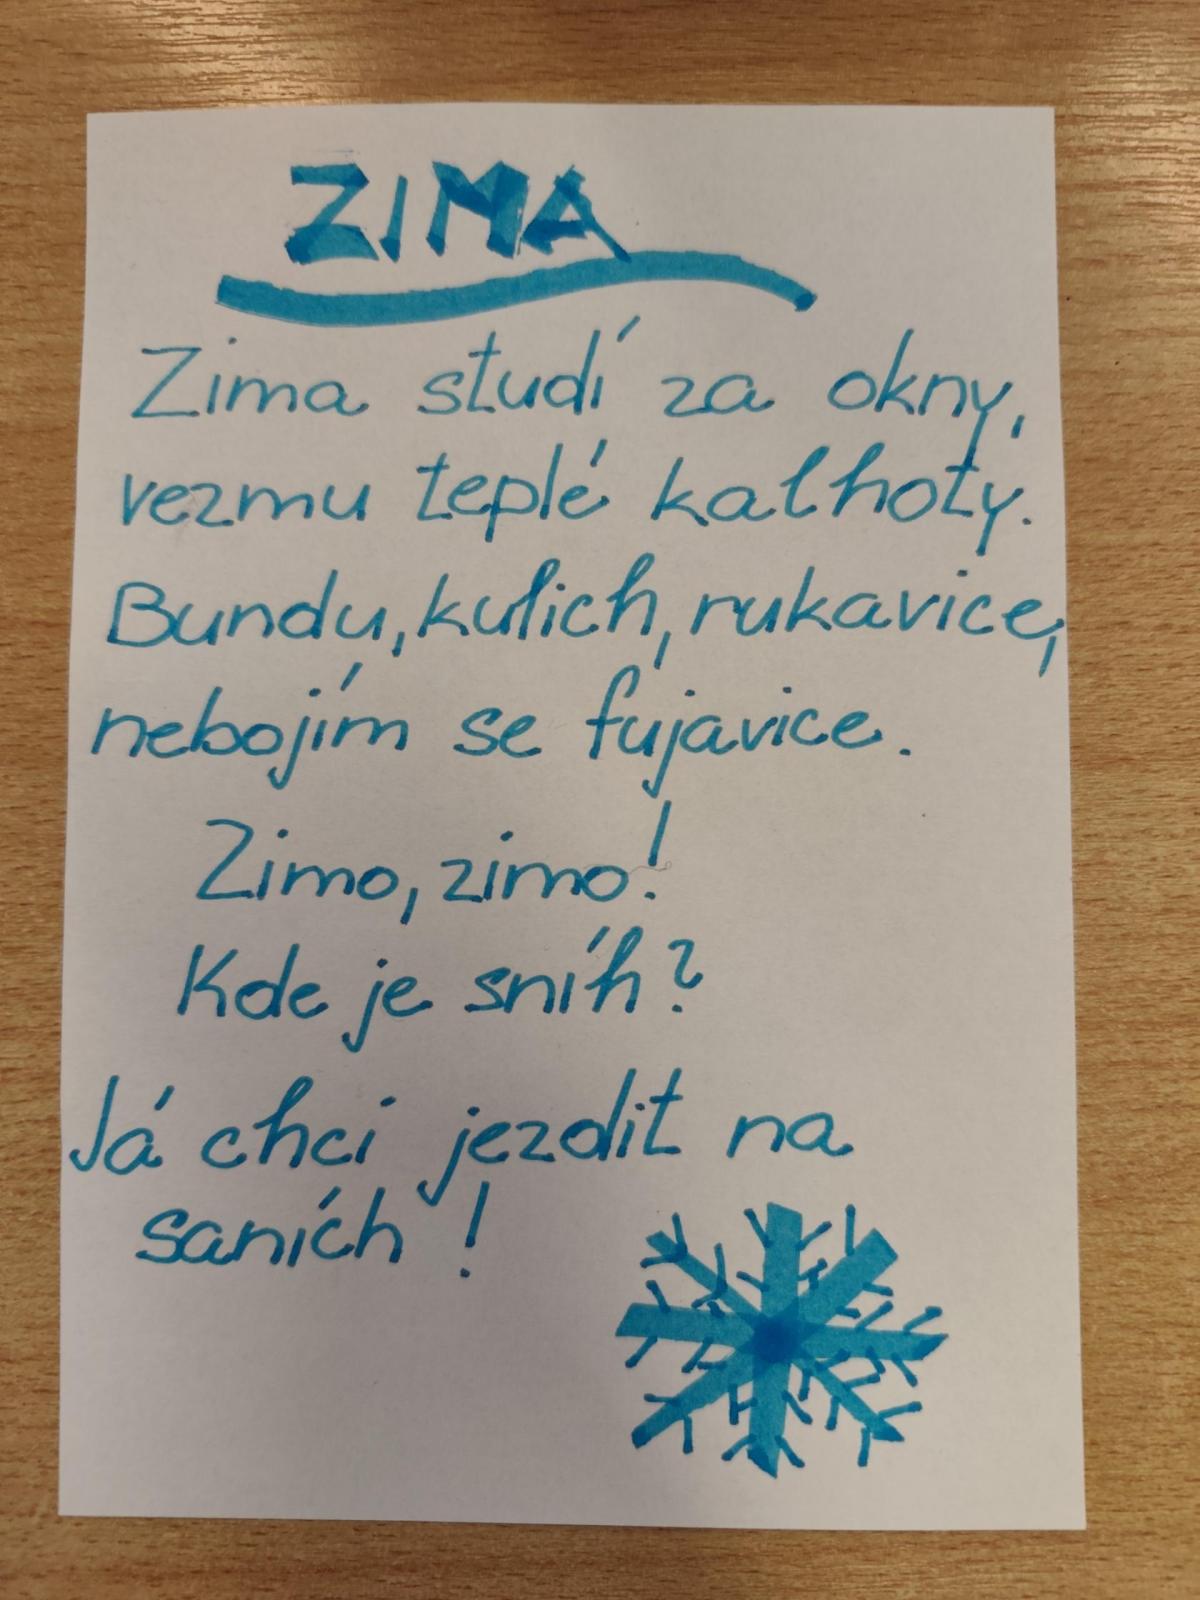 ZIMA
Zima studí za okny,
vezmu teplé kalhoty.
Bundu, kulich, rukavice,
nebojím se fujavice.
Zimo, zimo!
Kde je sníh?
Já chci jezdit na
saních!